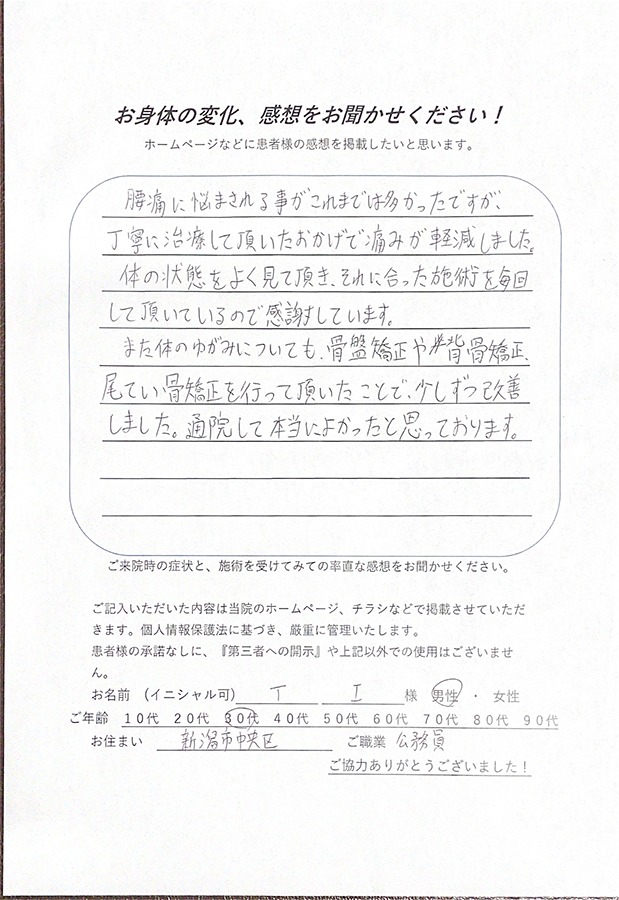 お身体の変化、感想をお聞かせください！
ホームページなどに患者様の感想を掲載したいと思います。
腰痛に悩まされる事がこれまでは多かったですが、
丁寧に治療して頂いたおかげで痛みが軽減しました。
体の状態をよく見て頂き、それに合った施術を毎回
して頂いているので感謝しています。
また体のゆがみについても、骨盤矯正や背骨矯正、
尾てい骨矯正を行って頂いたことで、少しずつ改善
しました。通院して本当によかったと思っております。
ご来院時の症状と、施術を受けてみての率直な感想をお聞かせください。
ご記入いただいた内容は当院のホームページ、チラシなどで掲載させていただ
きます。個人情報保護法に基づき、厳重に管理いたします。
患者様の承諾なしに、『第三者への開示』や上記以外での使用はございませ
ん。
お名前 （イニシャル可） T I 様 男性 ・ 女性
ご年齢 10代 20代 30代 40代 50代 60代 70代 80代 90代
お住まい 新潟市中央区 ご職業 公務員
ご協力ありがとうございました！